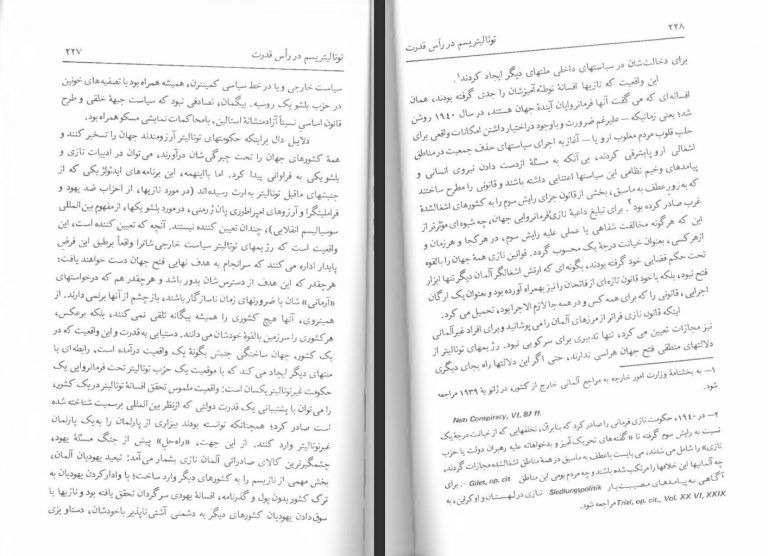 توتالیتریسم در رأس قدرت ۲۲۷
سیاست خارجی و یا در خط سیاسی کمینترن، همیشه همراه بود با تصفیه‌های خونین
در حزب بلشویک روسیه. بیگمان، تصادفی نبود که سیاست جبههٔ خلقی و طرح
قانون اساسی نسبتاً آزادمنشانهٔ استالین، با محاکمات نمایشی مسکو همراه بود.
دلایل دال براینکه حکومتهای توتالیتر آرزومندند جهان را تسخیر کنند و
همهٔ کشورهای جهان را تحت چیرگی‌شان درآورند، می‌توان در ادبیات نازی و
بلشویکی به فراوانی پیدا کرد. اما بااینهمه، این برنامه‌های ایدئولوژیکی که از
جنبشهای ماقبل توتالیتر به‌ارث رسیده‌اند (در مورد نازیها، از احزاب ضد یهود و
فراملیتگرا و آرزوهای امپراطوری پان ژرمنی، در مورد بلشویکها، از مفهوم بین‌المللی
سوسیالیسم انقلابی)، چندان تعیین کننده نیستند. آنچه که تعیین کننده است، این
واقعیت است که رژیمهای توتالیتر سیاست خارجی‌شان‌را واقعاً برطبق این فرض
پایدار اداره می‌کنند که سرانجام به هدف نهایی فتح جهان دست خواهند یافت؛
هرچقدر که این هدف از دسترس‌شان بدور باشد و هرچقدر هم که درخواستهای
«آرمانی» شان با ضرورتهای زمان ناسازگار باشند، باز چشم از آنها برنمی‌دارند. از
همینروی، آنها هیچ کشوری را همیشه بیگانه تلقی نمی‌کنند، بلکه برعکس،
هرکشوری را سرزمین بالقوهٔ خودشان می‌دانند. دستیابی به قدرت و این واقعیت که در
یک کشور، جهان ساختگی جنبش بگونهٔ یک واقعیت درآمده است، رابطه‌ای با
ملتهای دیگر ایجاد می‌کند که با موقعیت یک حزب توتالیتر تحت فرمانروایی یک
حکومت غیرتوتالیتر یکسان است؛ واقعیت ملموس تحقق افسانهٔ توتالیتر دریک کشور،
را می‌توان با پشتیبانی یک قدرت دولتی که ازنظر بین‌المللی برسمیت شناخته شده
است صادر کرد؛ همچنانکه توانسته بودند بیزاری از پارلمان را به‌یک پارلمان
غیرتوتالیتر وارد کنند. از این جهت، «راه‌حل» پیش از جنگ مسئلهٔ یهود،
چشمگیرترین کالای صادراتی آلمان نازی بشمار می‌آمد: تبعید یهودیان آلمان،
بخش مهمی از نازیسم را به کشورهای دیگر وارد ساخت؛ با وادار کردن یهودیان به
ترک کشور بدون پول و گذرنامه، افسانهٔ یهودی سرگردان تحقق یافته بود و نازیها با
سوق‌دادن یهودیان کشورهای دیگر به دشمنی آشتی‌ناپذیر باخودشان، دستاویزی
۲۲۸ توتالیتریسم در رأس قدرت
برای دخالت‌شان در سیاستهای داخلی ملتهای دیگر ایجاد کردند۱.
این واقعیت که نازیها افسانهٔ توطئه‌آمیزشان را جدی گرفته بودند، همان
افسانه‌ای که می گفت آنها فرمانروایان آیندهٔ جهان هستند، در سال ۱۹۴۰ روشن
شد؛ یعنی زمانیکه — علیرغم ضرورت و با وجود دراختیار داشتن امکانات واقعی برای
جلب قلوب مردم مغلوب اروپا — آغاز به اجرای سیاستهای حذف جمعیت در مناطق
اشغالی اروپا شرقی کردند، بی آنکه به مسئلهٔ ازدست دادن نیروی انسانی و
پیامدهای وخیم نظامی این سیاستها اعتنایی داشته باشند و قانونی را مطرح ساختند
که به زور عطف به ماسبق، بخشی از قانون جزای رایش سوم را به کشورهای اشغالشدهٔ
غرب صادر کرده بود۲. برای تبلیغ داعیهٔ نازی فرمانروایی جهان، چه شیوه‌ای موثرتر از
این که هرگونه مخالفت شفاهی یا عملی علیه رایش سوم، در هرکجا و هرزمان و
ازهرکسی، بعنوان خیانت درجهٔ یک محسوب گردد. قوانین نازی همهٔ جهان را بالقوه
تحت حکم قضایی خود گرفته بودند، بگونه‌ای که ارتش اشغالگر آلمان دیگر تنها ابزار
فتح نبود، بلکه با خود قانون تازه‌ای از فاتحان را نیز بهمراه آورده بود و بعنوان یک ارگان
اجرایی، قانونی را که برای همه کس و در همه جا لازم الاجرا بود، تحمیل می‌کرد.
اینکه قانون نازی فراتر از مرزهای آلمان را می پوشانید و برای افراد غیرآلمانی
نیز مجازات تعیین می کرد، تنها تدبیری برای سرکوبی نبود. رژیمهای توتالیتر از
دلالتهای منطقی فتح جهان هراسی ندارند، حتی اگر این دلالتها راه بجای دیگری
۱— به بخشنامهٔ وزارت امور خارجه به مراجع آلمانی خارج از کشور، در ژانویهٔ ۱۹۳۹ مراجعه
شود.
Nazi Conspiracy, VI, 87 ff.
۲— در ۱۹۴۰، حکومت نازی فرمانی را صادر کرد که بنابرآن، تخلفهایی که از خیانت درجهٔ یک
نسبت به رایش سوم گرفته تا «گفته‌های تحریک آمیز و بدخواهانه علیه رهبران دولت یا حزب
نازی» را شامل می شدند، می بایست باعطف به ماسبق در همهٔ مناطق اشغالشده مجازات گردند،
چه آلمانیها این خلافها را مرتکب شده باشند و چه مردم بومی این مناطق Giles, op. cit. برای
آگاهی به پیامدهای مصیبت‌بار Siedlungspolitik نازی در لهستان و اوکراین، به
Trial, op. cit., Vol. XX VI, XXIX مراجعه شود.